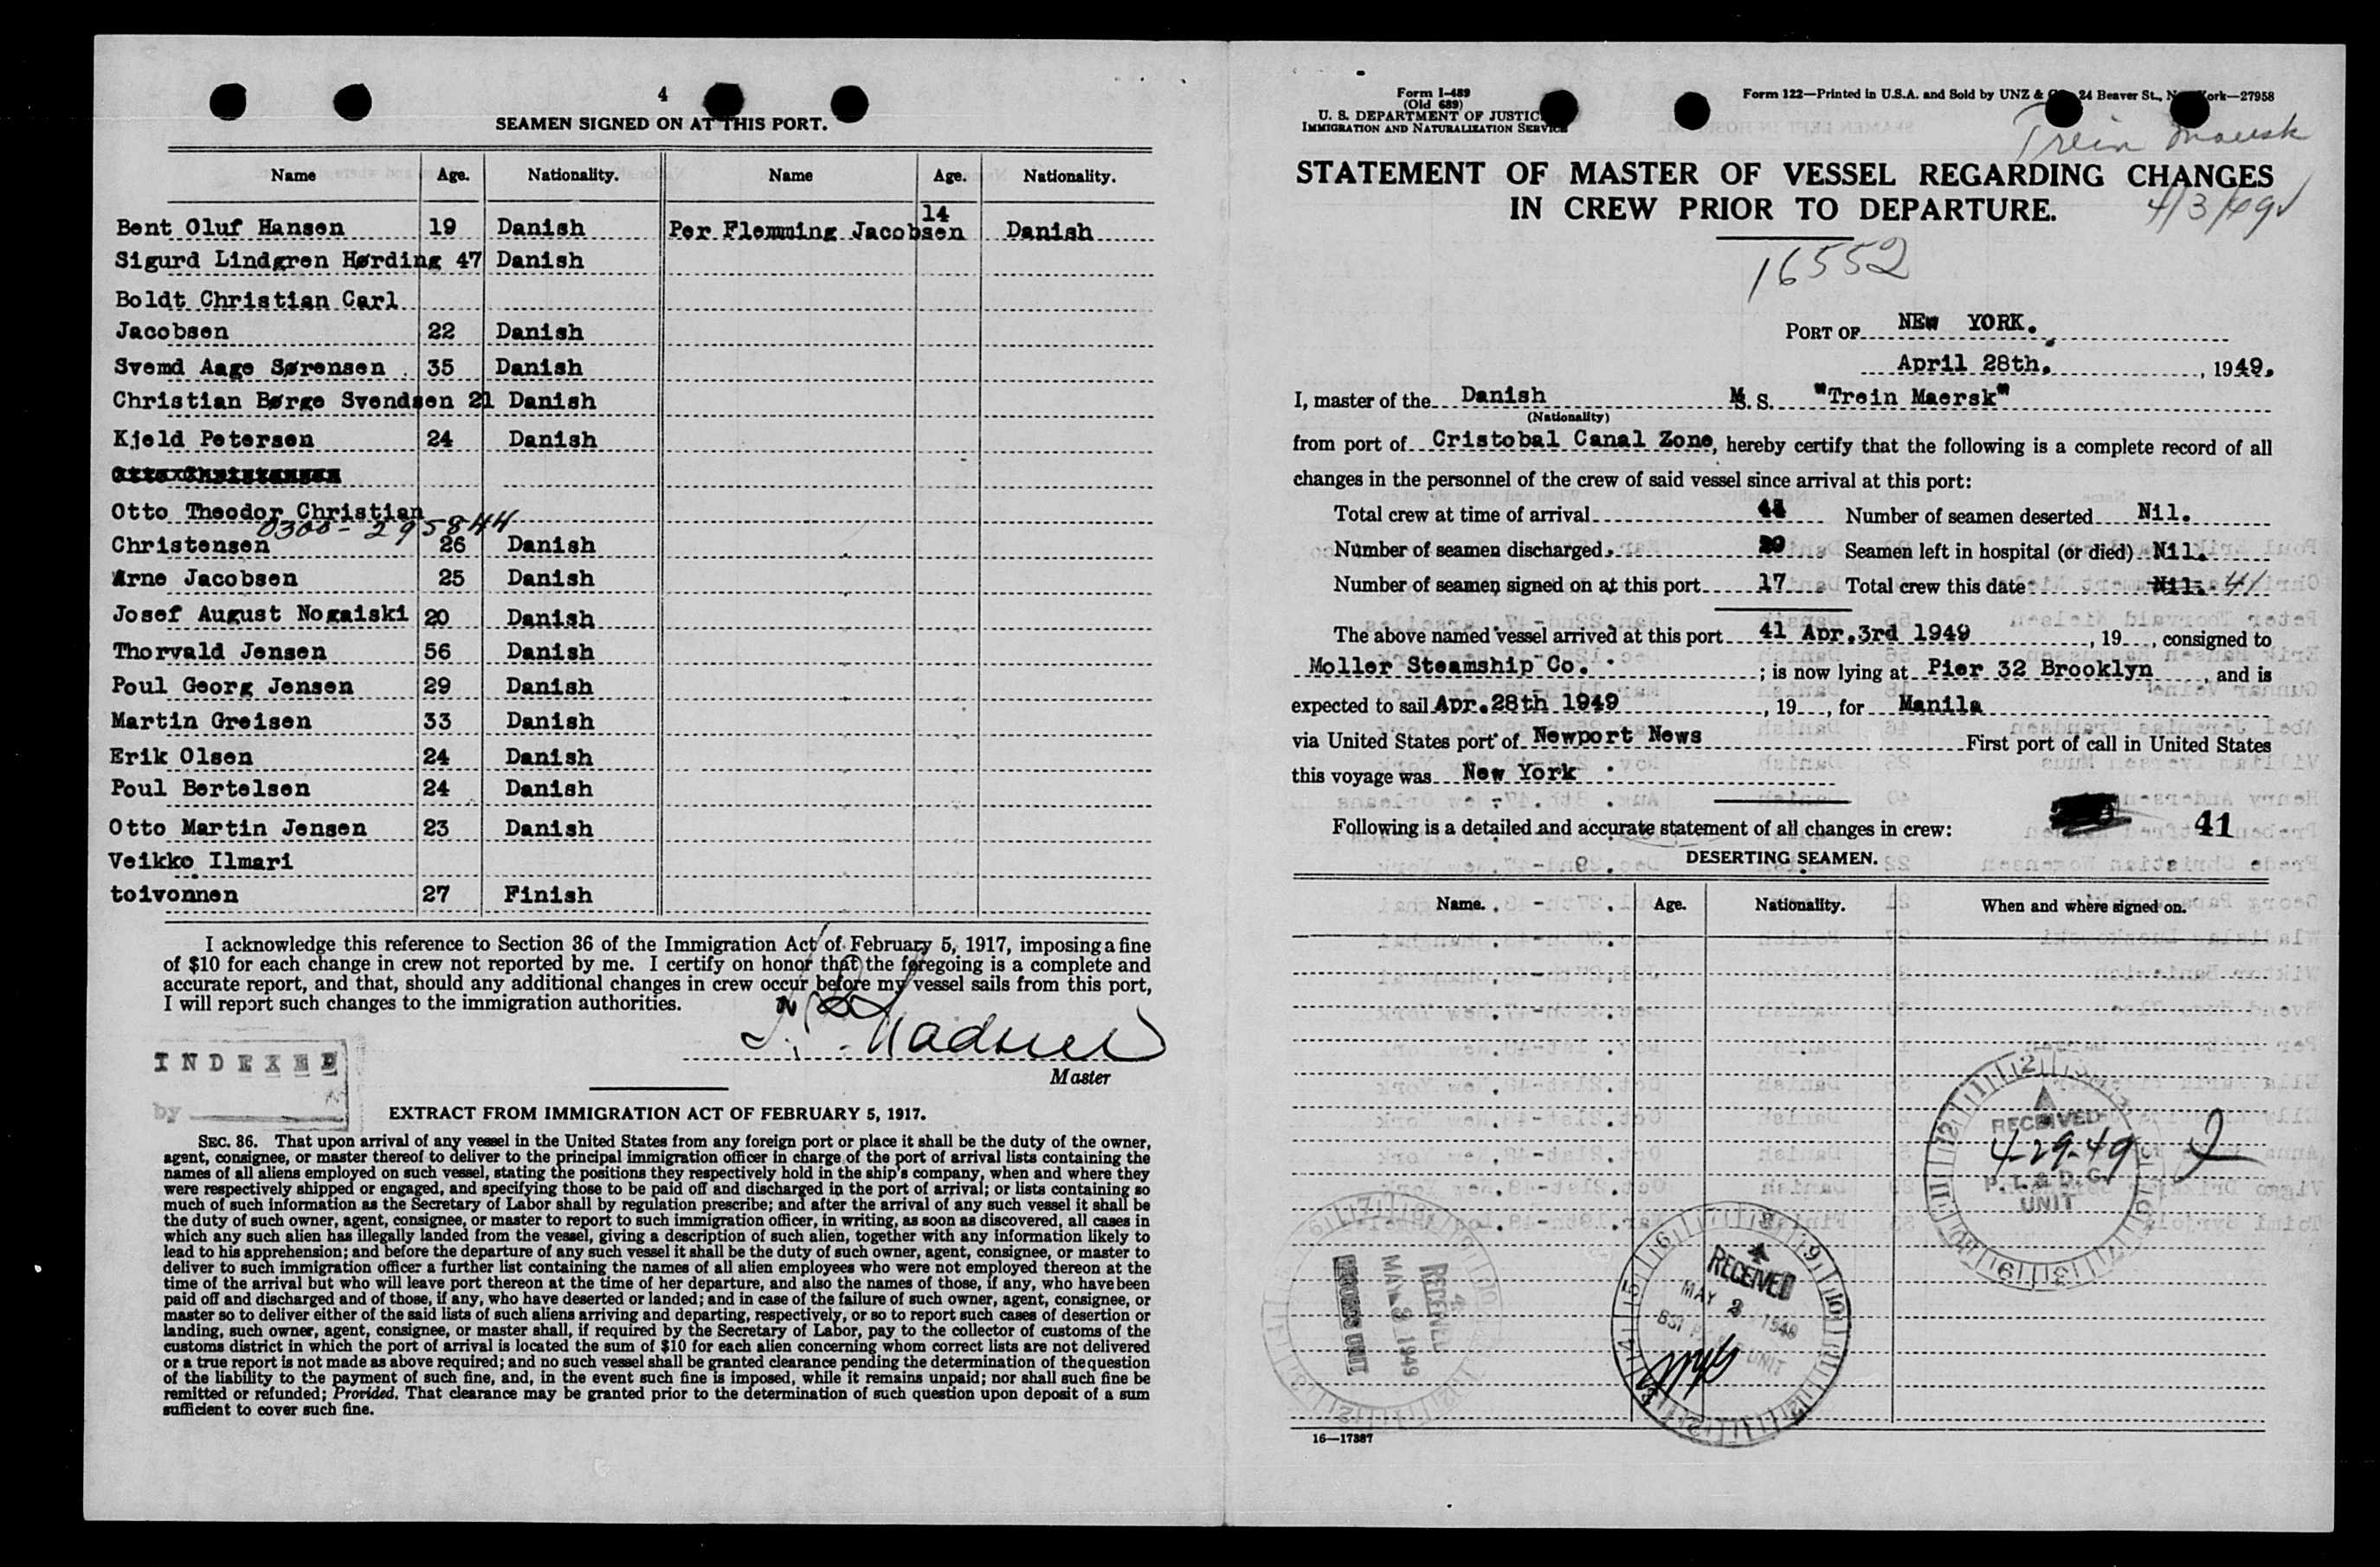 4
SEAMEN SIGNED ON AT THIS PORT.
Name Age. Nationality. Name Age. Nationality.
Bent Oluf Hansen 19 Danish Per Flemming Jacobsen 14 Danish
Sigurd Lindgren Hørding 47 Danish
Boldt Christian Carl
Jacobsen 22 Danish
Svemd Aage Sørensen 35 Danish
Christian Børge Svendsen 21 Danish
Kjeld Petersen 24 Danish
Otto Theodor Christian
0300-295844
Christensen 26 Danish
Arne Jacobsen 25 Danish
Josef August Nogaiski 20 Danish
Thorvald Jensen 56 Danish
Poul Georg Jensen 29 Danish
Martin Greisen 33 Danish
Erik Olsen 24 Danish
Poul Bertelsen 24 Danish
Otto Martin Jensen 23 Danish
Veikko Ilmari
toivonnen 27 Finish
I acknowledge this reference to Section 36 of the Immigration Act of February 5, 1917, imposing a fine
of $10 for each change in crew not reported by me. I certify on honor that the foregoing is a complete and
accurate report, and that, should any additional changes in crew occur before my vessel sails from this port,
I will report such changes to the immigration authorities.
Master
INDEXED
by
EXTRACT FROM IMMIGRATION ACT OF FEBRUARY 5, 1917.
SEC. 36. That upon arrival of any vessel in the United States from any foreign port or place it shall be the duty of the owner,
agent, consignee, or master thereof to deliver to the principal immigration officer in charge of the port of arrival lists containing the
names of all aliens employed on such vessel, stating the positions they respectively hold in the ship's company, when and where they
were respectively shipped or engaged, and specifying those to be paid off and discharged in the port of arrival; or lists containing so
much of such information as the Secretary of Labor shall by regulation prescribe; and after the arrival of any such vessel it shall be
the duty of such owner, agent, consignee, or master to report to such immigration officer, in writing, as soon as discovered, all cases in
which any such alien has illegally landed from the vessel, giving a description of such alien, together with any information likely to
lead to his apprehension; and before the departure of any such vessel it shall be the duty of such owner, agent, consignee, or master to
deliver to such immigration officer a further list containing the names of all alien employees who were not employed thereon at the
time of the arrival but who will leave port thereon at the time of her departure, and also the names of those, if any, who have been
paid off and discharged and of those, if any, who have deserted or landed; and in case of the failure of such owner, agent, consignee, or
master so to deliver either of the said lists of such aliens arriving and departing, respectively, or so to report such cases of desertion or
landing, such owner, agent, consignee, or master shall, if required by the Secretary of Labor, pay to the collector of customs of the
customs district in which the port of arrival is located the sum of $10 for each alien concerning whom correct lists are not delivered
or a true report is not made as above required; and no such vessel shall be granted clearance pending the determination of the question
of the liability to the payment of such fine, and, in the event such fine is imposed, while it remains unpaid; nor shall such fine be
remitted or refunded; Provided, That clearance may be granted prior to the determination of such question upon deposit of a sum
sufficient to cover such fine.
Form I-489
(Old 689)
U. S. DEPARTMENT OF JUSTICE
IMMIGRATION AND NATURALIZATION SERVICE
Form 122—Printed in U.S.A. and Sold by UNZ & 24 Beaver St., New York—27958
Trein Maersk
STATEMENT OF MASTER OF VESSEL REGARDING CHANGES
IN CREW PRIOR TO DEPARTURE.
4/3/49
16552
PORT OF NEW YORK.
April 28th, , 1949.
I, master of the Danish M.S. "Trein Maersk"
(Nationality)
from port of Cristobal Canal Zone, hereby certify that the following is a complete record of all
changes in the personnel of the crew of said vessel since arrival at this port:
Total crew at time of arrival Number of seamen deserted Nil.
Number of seamen discharged 20 Seamen left in hospital (or died) Nil.
Number of seamen signed on at this port 17 Total crew this date Nil. 41
The above named vessel arrived at this port 41 Apr.3rd 1949 , 19 , consigned to
Moller Steamship Co. ; is now lying at Pier 32 Brooklyn , and is
expected to sail Apr.28th 1949 , 19 , for Manila
via United States port of Newport News First port of call in United States
this voyage was New York
Following is a detailed and accurate statement of all changes in crew: 41
DESERTING SEAMEN.
Name. Age. Nationality. When and where signed on.
RECEIVED
4-29-49
UNIT
RECEIVED
MAY 3 1949
RECORDS UNIT
RECEIVED
MAY 2 1949
UNIT
16—17387